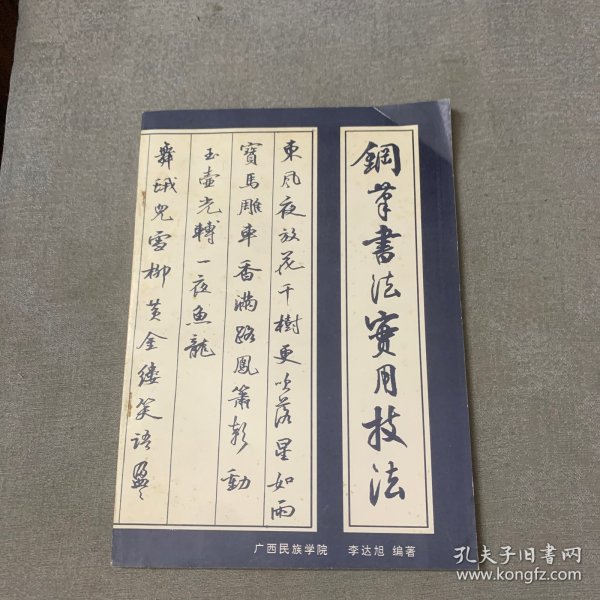 鋼筆書法實用技法
東風夜放花千樹更吹落星如雨
寶馬雕車香滿路鳳簫聲動
玉壺光轉一夜魚龍
舞蛾兒雪柳黃金縷笑語盈〻
广西民族学院 李达旭 编著
孔夫子旧书网
www.kongfz.com